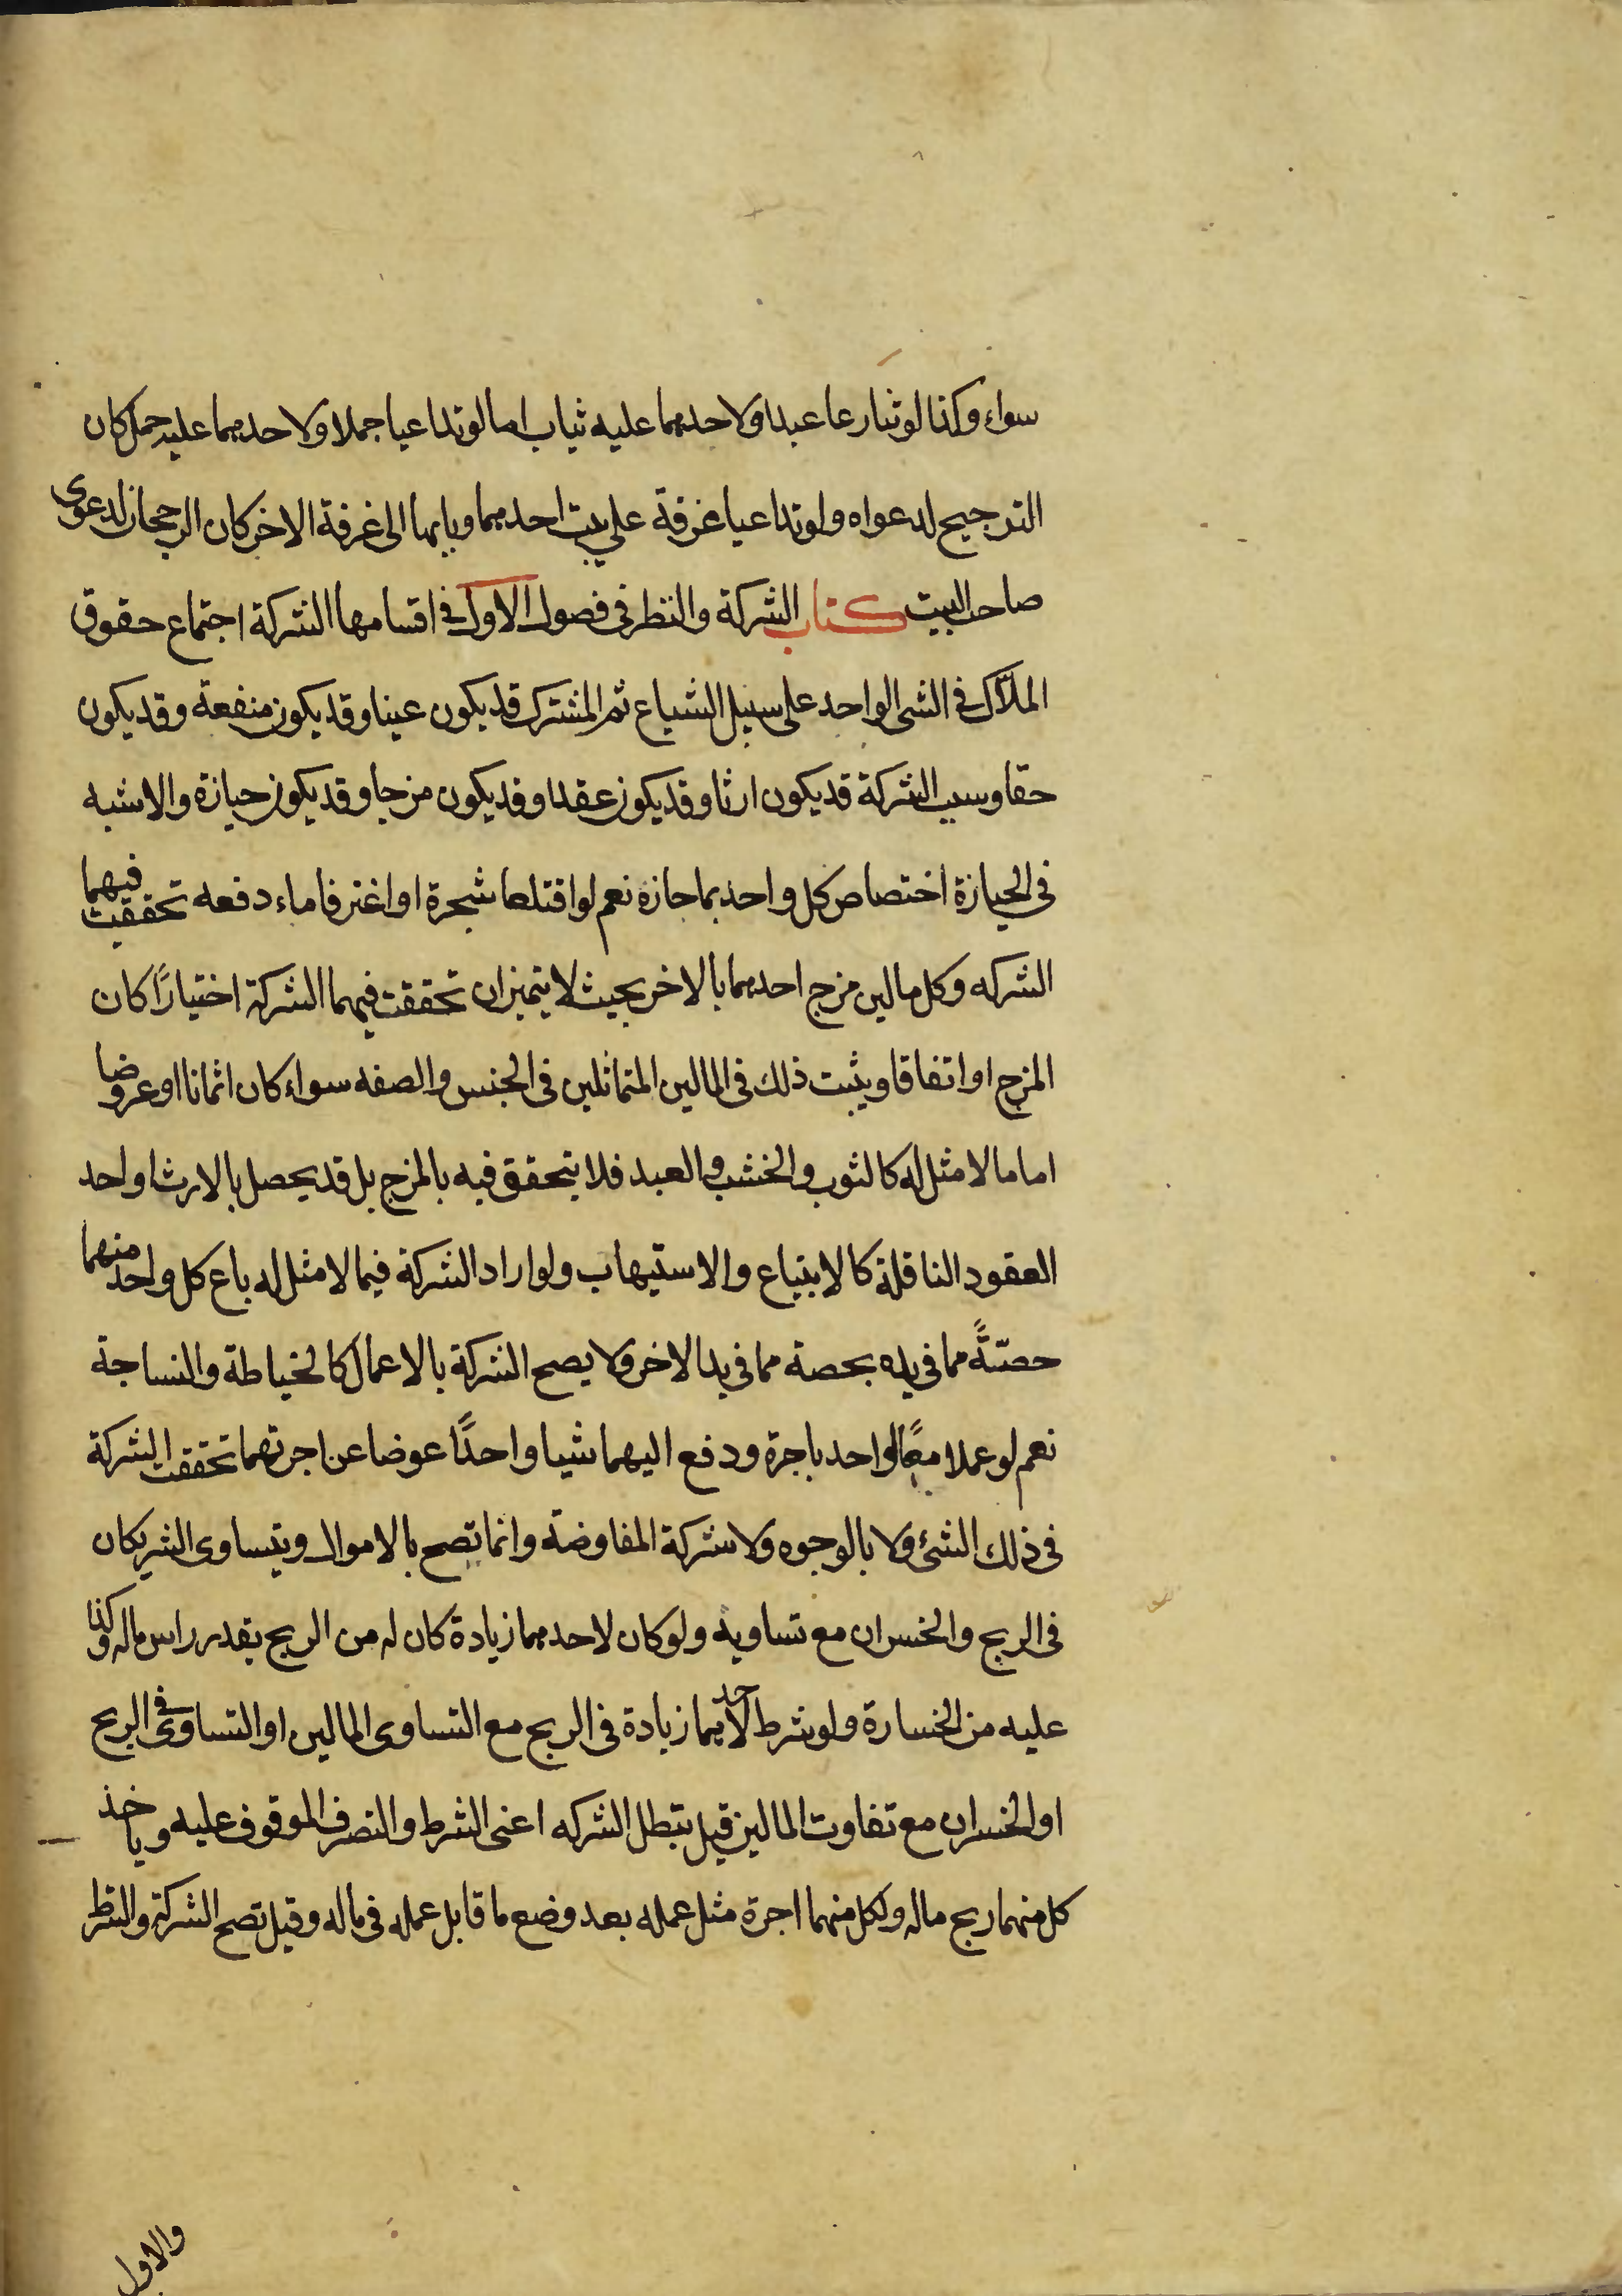 سواء وكذا لو تنازعا عبدا ولاحدهما عليه ثياب اما لو تداعيا جملا ولاحدهما عليه حمل كان
الترجيح لدعواه ولو تداعيا غرفة على بيت احدهما وبابها الى غرفة الاخر كان الرجحان لدعوى
صاحب البيت كتاب الشركة والنظر فى فصول الاول فى اقسامها الشركة اجتماع حقوق
الملاّك فى الشى الواحد على سبيل الشياع ثم المشترك قد يكون عينا وقد يكون منفعة وقد يكون
حقا وسبب الشركة قد يكون ارثا وقد يكون عقدا وقد يكون مزجا وقد يكون حيازة والاشبه
فى الحيازة اختصاص كل واحد بما حازه نعم لو اقتلعا شجرة او اغترفا ماء دفعه تحققت فيهما
الشركه وكل مالين مزج احدهما بالاخر بحيث لا يتميزان تحققت فيهما الشركة اختيارًا كان
المزج او اتفاقا ويثبت ذلك فى المالين المتماثلين فى الجنس والصفه سواء كان اثمانا او عروضا
اما ما لا مثل له كالثوب والخشب والعبد فلا يتحقق فيه بالمزج بل قد يحصل بالارث او احد
العقود الناقلة كالابتياع والاستيهاب ولو اراد الشركة فيما لا مثل له باع كل واحد منهما
حصّةً مما فى يده بحصة مما فى يد الاخر ولا يصح الشركة بالاعمال كالخياطة والنساجة
نعم لو عملا معًا لواحد باجرة ودفع اليهما شيا واحدًا عوضا عن اجرتهما تحققت الشركة
فى ذلك الشئ ولا بالوجوه ولا شركة المفاوضة وانما تصح بالاموال ويتساوى الشريكان
فى الربح والخسران مع تساويه ولو كان لاحدهما زيادة كان له من الربح بقدر راس ماله وكذا
عليه من الخسارة ولو شرط لاحدهما زيادة فى الربح مع التساوى المالين او التساوى فى الربح
او الخسران مع تفاوت المالين قيل تبطل الشركه اعنى الشرط والتصرف الموقوف عليه وياخذ
كل منهما ربح ماله ولكل منهما اجرة مثل عمله بعد وضع ما قابل عمله فى ماله وقيل تصح الشركة والشرط
والاول